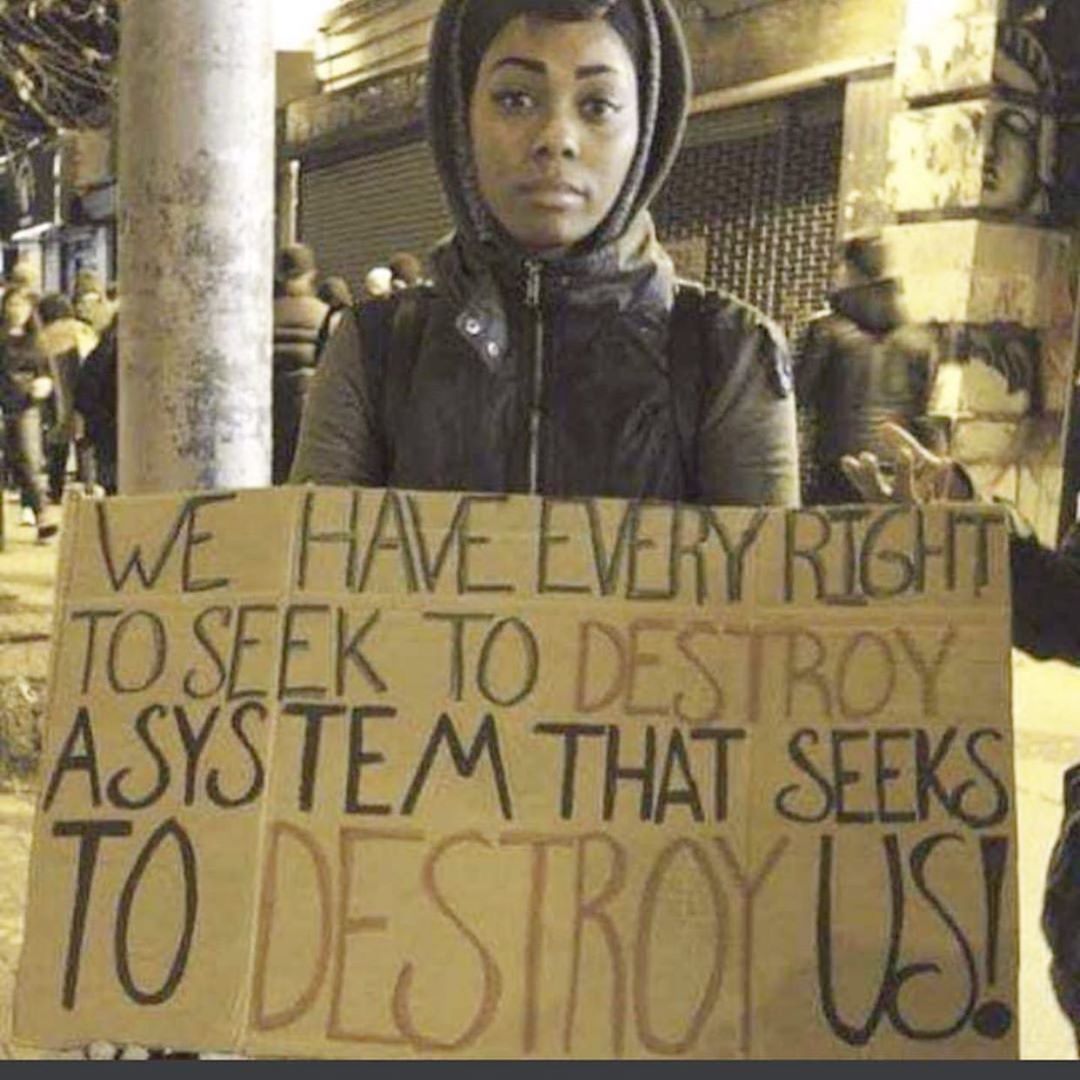 WE HAVE EVERY RIGHT
TO SEEK TO DESTROY
A SYSTEM THAT SEEKS
TO DESTROY US!